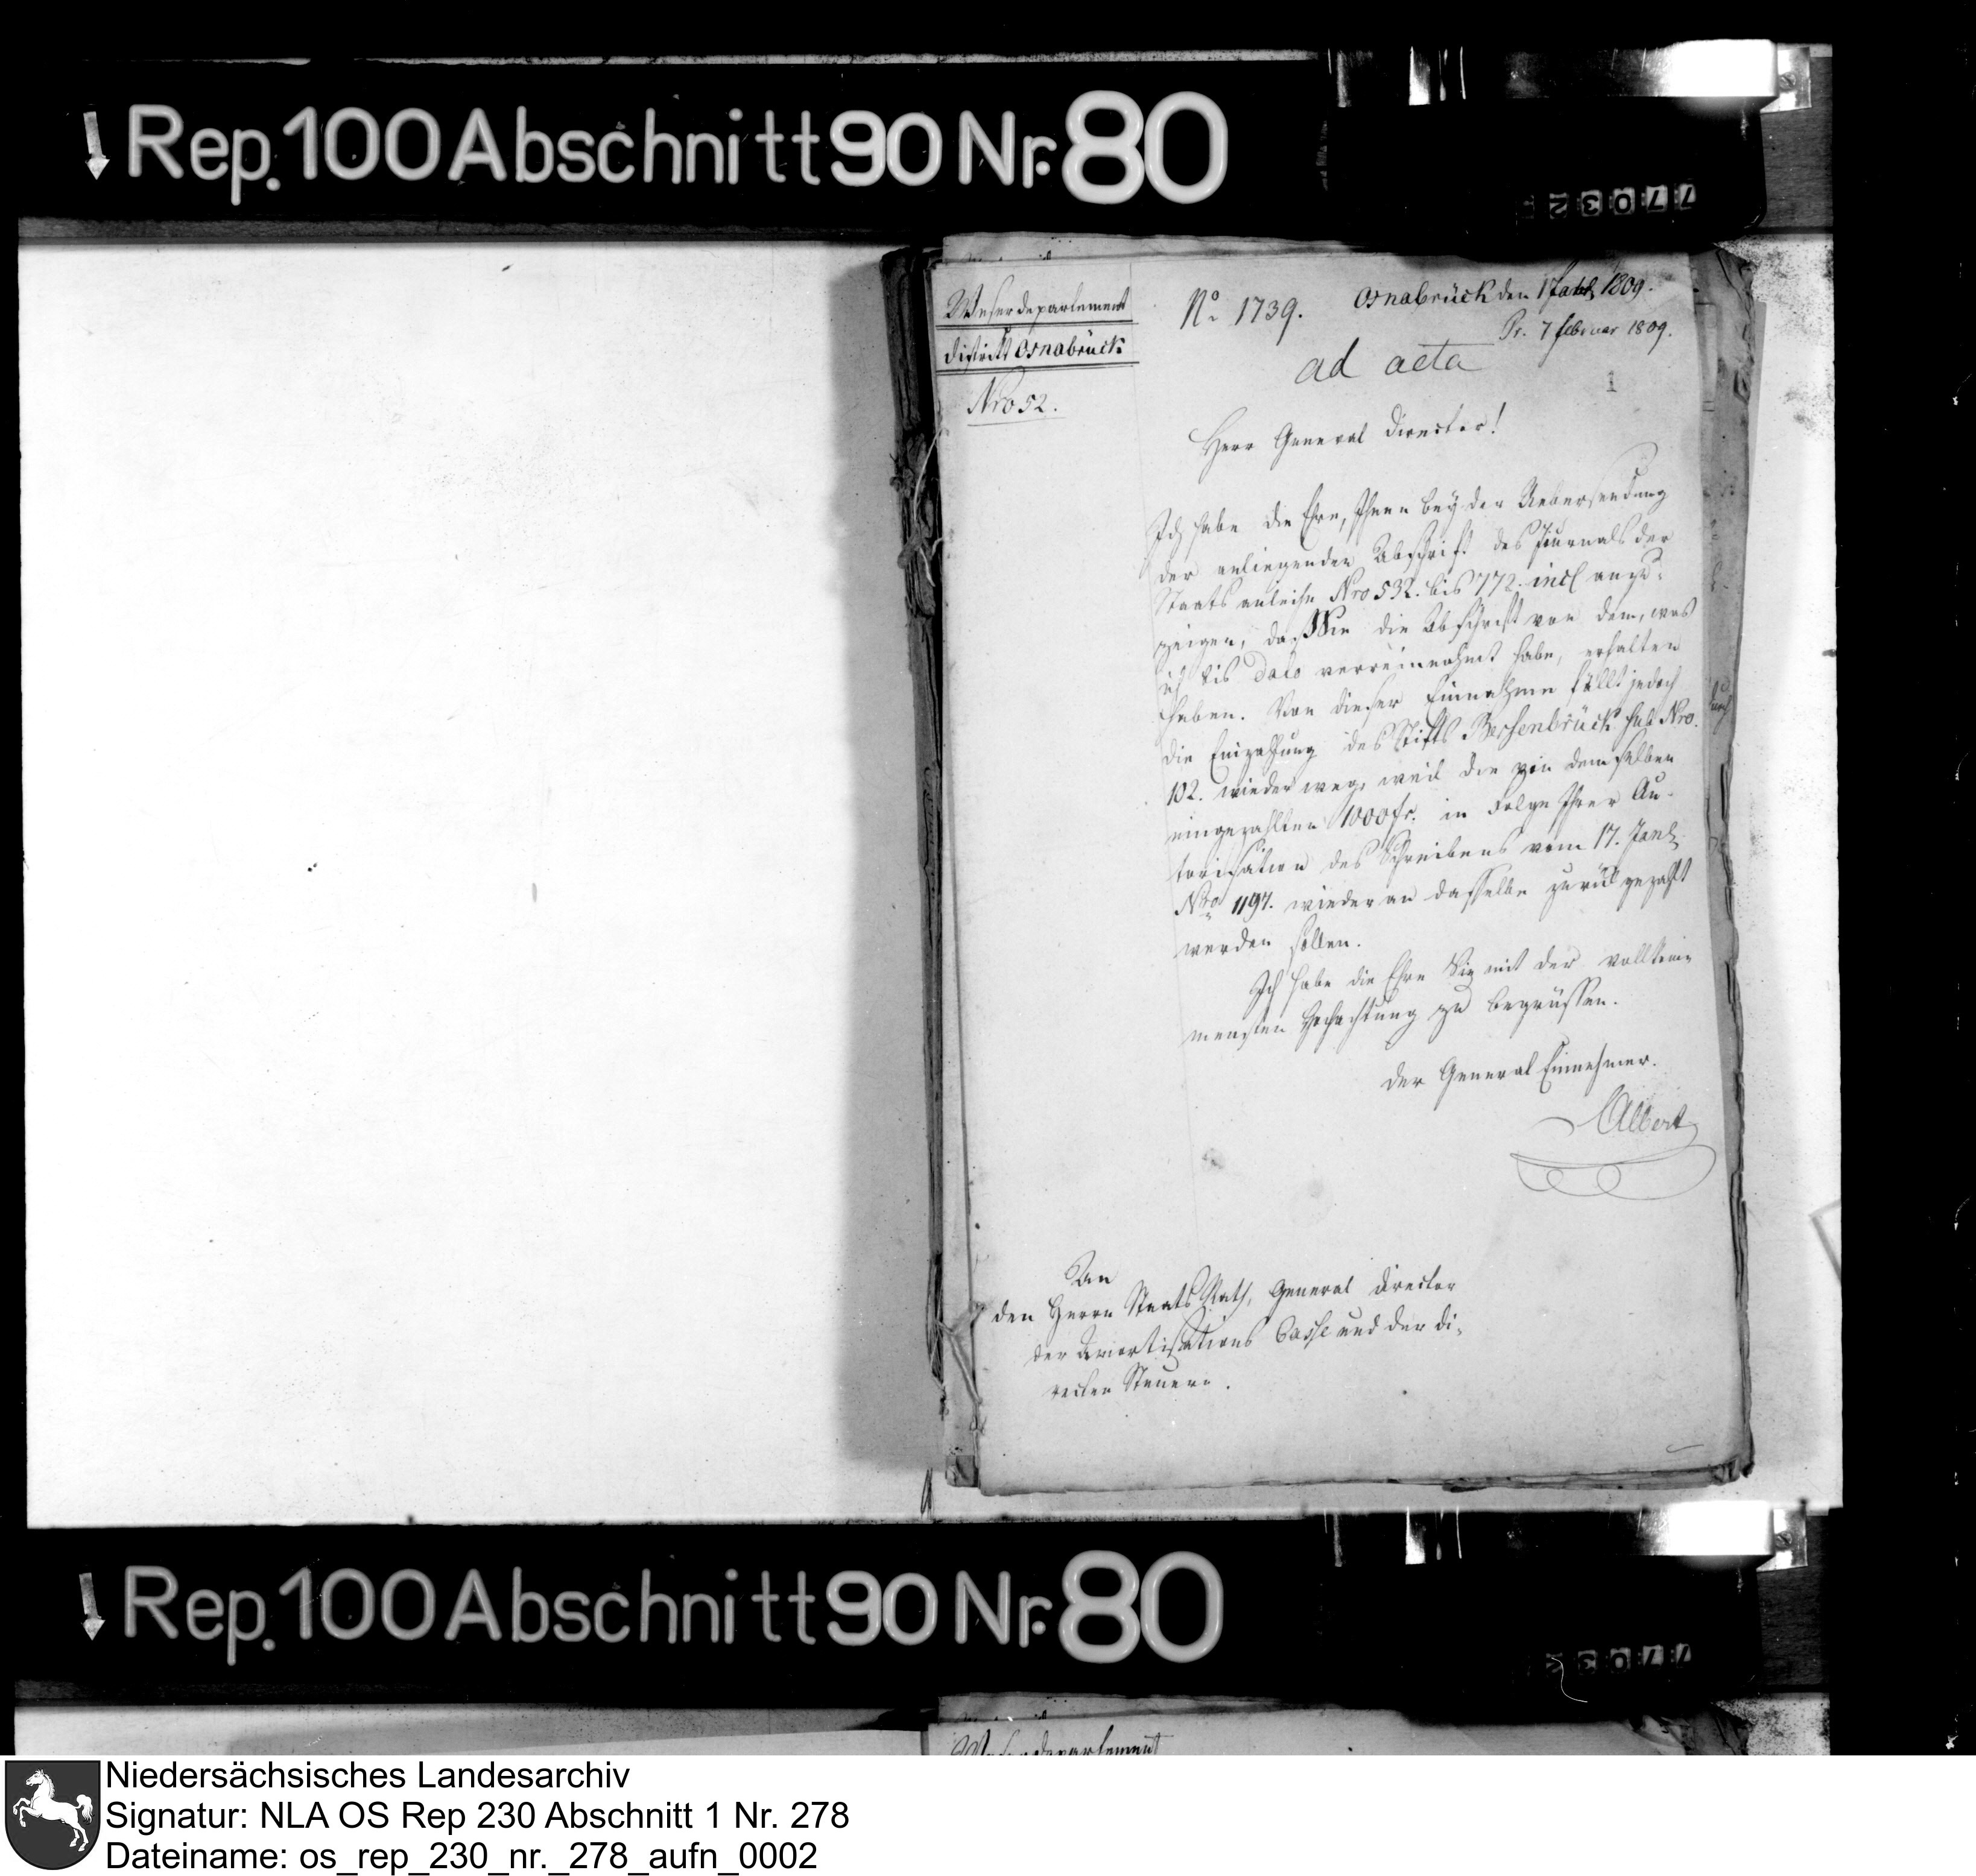 Rep. 100 Abschnitt 90 Nr. 80
77032
Weserdepartement
District Osnabrück
Nro 52.
No 1739.
Osnabrück den 1 Febr 1809.
Pr. 7 februar 1809.
ad acta
1
Herr General Director!
Ich habe die Ehre, Ihnen bey der Uebersendung
der anliegenden Abschrift des Journals der
Staats anleihe Nro 532. bis 772. incl anzu-
zeigen, daß Sie die Abschrift von dem, was
ich bis dato vereinnahmt habe, erhalten
haben. Von dieser Einnahme fällt jedoch
die Einzahlung des Stifts Bersenbrück sub Nro.
102. wieder weg, weil die von demselben
eingezahlten 1000 fr. in Folge Ihrer Au-
torisation des Schreibens vom 17. Jan
Nro 1197. wieder an dasselbe zurück gezahlt
werden sollen.
Ich habe die Ehre Sie mit der vollkom-
mensten Hochachtung zu begrüssen.
der General Einnehmer.
Albert
An
den Herrn Staats Rath, General Director
der Amortisations Casse und der di-
recten Steuern.
Rep. 100 Abschnitt 90 Nr. 80
Weserdepartement
Niedersächsisches Landesarchiv
Signatur: NLA OS Rep 230 Abschnitt 1 Nr. 278
Dateiname: os_rep_230_nr._278_aufn_0002